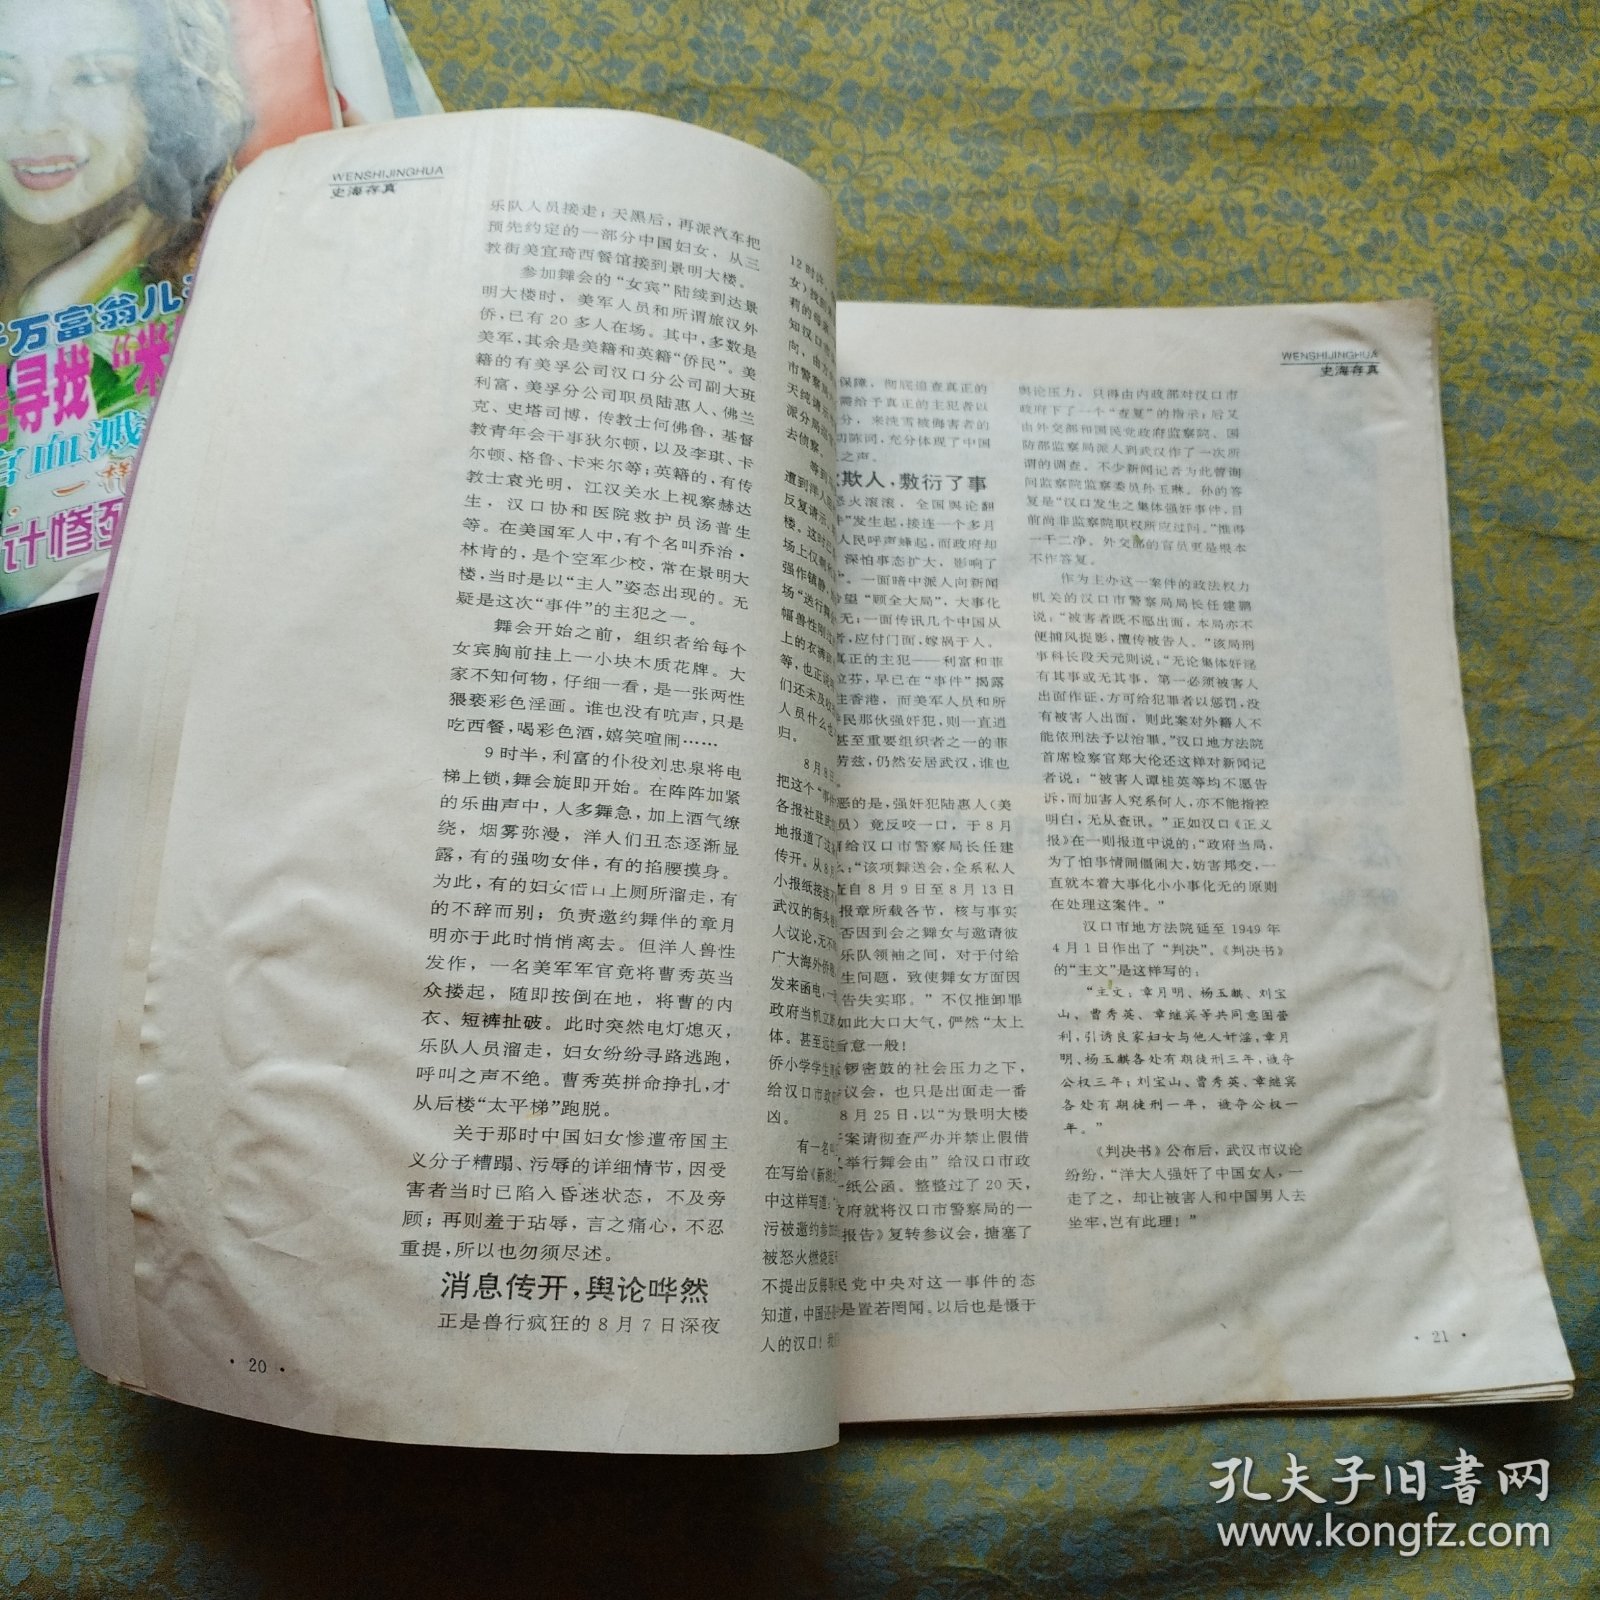 WENSHIJINGHUA
史海存真
乐队人员接走；天黑后，再派汽车把
预先约定的一部分中国妇女，从三
教街美宜琦西餐馆接到景明大楼。
参加舞会的“女宾”陆续到达景
明大楼时，美军人员和所谓旅汉外
侨，已有20多人在场。其中，多数是
美军，其余是美籍和英籍“侨民”。美
籍的有美孚公司汉口分公司副大班
利富、美孚分公司职员陆惠人、佛兰
克、史塔司博，传教士何佛鲁，基督
教青年会干事狄尔顿，以及李琪、卡
尔顿、格鲁、卡来尔等；英籍的，有传
教士袁光明，江汉关水上视察赫达
生，汉口协和医院救护员汤普生
等。在美国军人中，有个名叫乔治·
林肯的，是个空军少校，常在景明大
楼，当时是以“主人”姿态出现的。无
疑是这次“事件”的主犯之一。
舞会开始之前，组织者给每个
女宾胸前挂上一小块木质花牌。大
家不知何物，仔细一看，是一张两性
猥亵彩色淫画。谁也没有吭声，只是
吃西餐，喝彩色酒，嬉笑喧闹……
9时半，利富的仆役刘忠泉将电
梯上锁，舞会旋即开始。在阵阵加紧
的乐曲声中，人多舞急，加上酒气缭
绕，烟雾弥漫，洋人们丑态逐渐显
露，有的强吻女伴，有的掐腰摸身。
为此，有的妇女借口上厕所溜走，有
的不辞而别；负责邀约舞伴的章月
明亦于此时悄悄离去。但洋人兽性
发作，一名美军军官竟将曹秀英当
众搂起，随即按倒在地，将曹的内
衣、短裤扯破。此时突然电灯熄灭，
乐队人员溜走，妇女纷纷寻路逃跑，
呼叫之声不绝。曹秀英拼命挣扎，才
从后楼“太平梯”跑脱。
关于那时中国妇女惨遭帝国主
义分子糟蹋、污辱的详细情节，因受
害者当时已陷入昏迷状态，不及旁
顾；再则羞于玷辱，言之痛心，不忍
重提，所以也勿须尽述。
消息传开，舆论哗然
正是兽行疯狂的8月7日深夜
·20·
12时许
女）
莉的母亲
知汉口市
向，由方
市警察局
天纯请示
派分局
去侦察。
等到
遭到洋人
反复请示
楼，这时已
场上仅剩
强作镇静
场“送行舞
幅兽性刚过
上的衣裤
等，也正
们还未及
人员什么也
归。
8月8日
把这个“事件
各报社驻武
地报道了这
传开。从8月
小报纸接连
武汉的街头
人议论，无不
广大海外侨
发来函电，一
政府当机立
体。甚至远在
侨小学学生
给汉口市政
凶。
有一名
在写给《新
中这样写道：“
污被邀约参加
被怒火燃烧
不提出反
知道，中国还
人的汉口！我
WENSHIJINGHUA
史海存真
保障，彻底追查真正的
需给予真正的主犯者以
分，来洗雪被侮害者的
切陈词，充分体现了中国
之声。
欺人，敷衍了事
怒火滚滚，全国舆论翻
件”发生起，接连一个多月
人民呼声蜂起，而政府却
深怕事态扩大，影响了
”。一面暗中派人向新闻
望“顾全大局”，大事化
无；一面传讯几个中国从
者，应付门面，嫁祸于人。
真正的主犯——利富和菲
立芬，早已在“事件”揭露
往香港，而美军人员和所
民那伙强奸犯，则一直逍
甚至重要组织者之一的菲
劳兹，仍然安居武汉，谁也
恶的是，强奸犯陆惠人（美
员）竟反咬一口，于8月
给汉口市警察局长任建
：“该项舞送会，全系私人
查自8月9日至8月13日
报章所载各节，核与事实
否因到会之舞女与邀请彼
乐队领袖之间，对于付给
生问题，致使舞女方面因
告失实耶。”不仅推卸罪
如此大口大气，俨然“太上
旨意一般！
锣密鼓的社会压力之下，
议会，也只是出面走一番
8月25日，以“为景明大楼
案请彻查严办并禁止假借
举行舞会由”给汉口市政
一纸公函。整整过了20天，
政府就将汉口市警察局的一
报告》复转参议会，搪塞了
民党中央对这一事件的态
是置若罔闻。以后也是慑于
舆论压力，只得由内政部对汉口市
政府下了一个“查复”的指示；后又
由外交部和国民党政府监察院、国
防部监察局派人到武汉作了一次所
谓的调查。不少新闻记者为此曾询
问监察院监察委员孙玉琳。孙的答
复是“汉口发生之集体强奸事件，目
前尚非监察院职权所应过问。”推得
一干二净。外交部的官员更是根本
不作答复。
作为主办这一案件的政法权力
机关的汉口市警察局局长任建鹏
说：“被害者既不愿出面，本局亦不
便捕风捉影，擅传被告人。”该局刑
事科长段天元则说：“无论集体奸淫
有其事或无其事，第一必须被害人
出面作证，方可给犯罪者以惩罚，没
有被害人出面，则此案对外籍人不
能依刑法予以治罪。”汉口地方法院
首席检察官郑大伦还这样对新闻记
者说：“被害人谭桂英等均不愿告
诉，而加害人究系何人，亦不能指控
明白，无从查讯。”正如汉口《正义
报》在一则报道中说的：“政府当局，
为了怕事情闹僵闹大，妨害邦交，一
直就本着大事化小小事化无的原则
在处理这案件。”
汉口市地方法院延至1949年
4月1日作出了“判决”。《判决书》
的“主文”是这样写的：
“主文：章月明、杨玉麒、刘宝
山，曹秀英、章继宾等共同意图营
利，引诱良家妇女与他人奸淫，章月
明、杨玉麒各处有期徒刑三年，褫夺
公权三年；刘宝山、曹秀英、章继宾
各处有期徒刑一年，褫夺公权一
年。”
《判决书》公布后，武汉市议论
纷纷，“洋大人强奸了中国女人，一
走了之，却让被害人和中国男人去
坐牢，岂有此理！”
·21·
万富翁儿
寻找“米
官血溅
一
计惨烈
孔夫子旧书网
www.kongfz.com